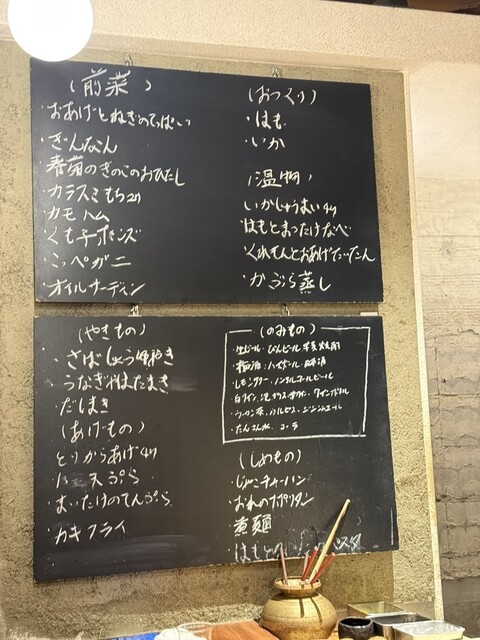 (前菜)
・おあげとねぎのてっぱい
・ぎんなん
・春菊のきのこのおひたし
・カラスミもち
・カモハム
・くも子ポンズ
・こっペガニ
・オイルサーディン
(おつくり)
・はも
・いか
(温物)
いかしゅうまい
はもとまつたけなべ
・かぶら蒸し
(やきもの)
・さばしょうゆやき
うなぎ
・だしまき
(あげもの)
とりからあげ
天ぷら
まいたけのてんぷら
・カキフライ
(のみもの)
・生ビール・びんビール
・梅酒・ハイボール・日本酒
・レモンサワー・ノンアルコールビール
・白ワイン
・ウーロン茶・カルピス・ジンジャエール
・たんさん水・コーラ
(しめもの)
・じゃこチャーハン
・おれのナポリタン
・煮麺
・はもと